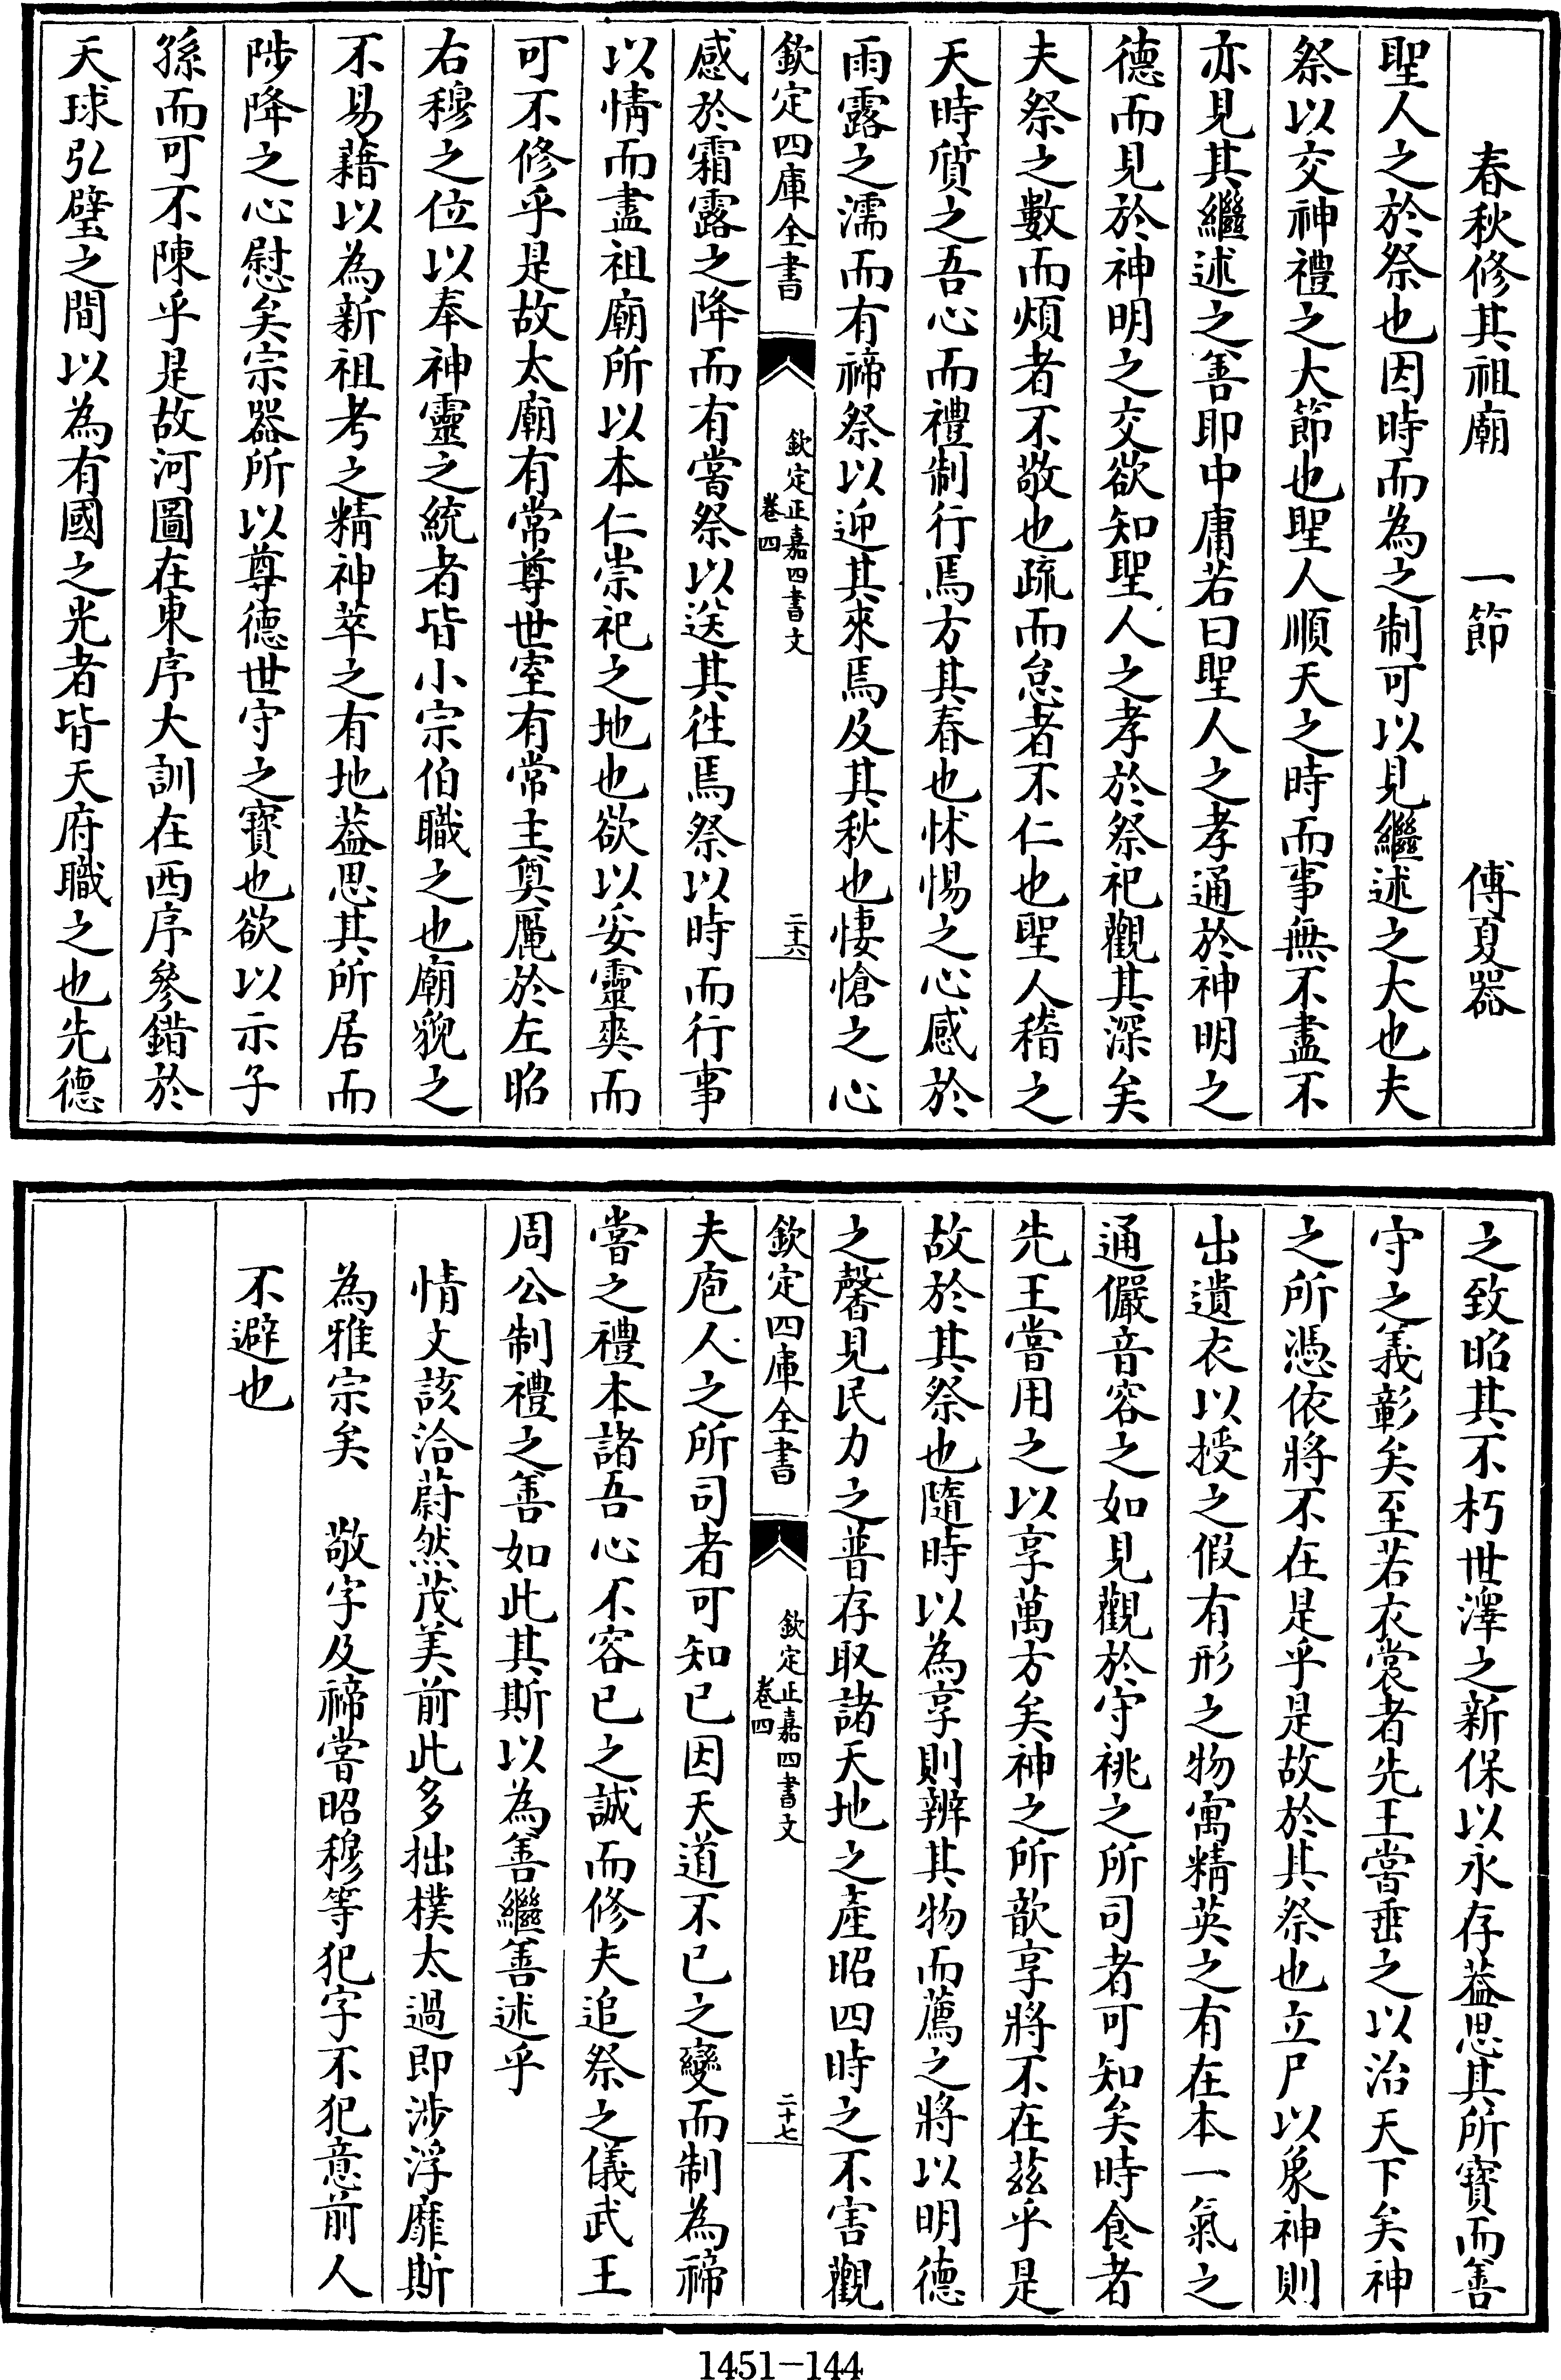 春秋修其祖廟　一節　傅夏器
聖人之於祭也因時而為之制可以見繼述之大也夫
祭以交神禮之大節也聖人順天之時而事無不盡不
亦見其繼述之善耶中庸若曰聖人之孝通於神明之
德而見於神明之交欲知聖人之孝於祭祀觀其深矣
夫祭之數而煩者不敬也疏而怠者不仁也聖人稽之
天時質之吾心而禮制行焉方其春也怵惕之心感於
雨露之濡而有禘祭以迎其來焉及其秋也悽愴之心
欽定四庫全書
欽定正嘉四書文
卷四
二十六
感於霜露之降而有嘗祭以送其往焉祭以時而行事
以情而盡祖廟所以本仁崇祀之地也欲以妥靈爽而
可不修乎是故太廟有常尊世室有常主奠厴於左昭
右穆之位以奉神靈之統者皆小宗伯職之也廟貌之
不易藉以為新祖考之精神萃之有地葢思其所居而
陟降之心慰矣宗器所以尊德世守之寶也欲以示子
孫而可不陳乎是故河圖在東序大訓在西序參錯於
天球弘璧之間以為有國之光者皆天府職之也先德
之致昭其不朽世澤之新保以永存葢思其所寶而善
守之義彰矣至若衣裳者先王嘗垂之以治天下矣神
之所憑依將不在是乎是故於其祭也立尸以象神則
出遺衣以授之假有形之物寓精英之有在本一氣之
通儼音容之如見觀於守祧之所司者可知矣時食者
先王嘗用之以享萬方矣神之所歆享將不在茲乎是
故於其祭也隨時以為享則辨其物而薦之將以明德
之馨見民力之普存取諸天地之產昭四時之不害觀
欽定四庫全書
欽定正嘉四書文
卷四
二十七
夫庖人之所司者可知已因天道不已之變而制為禘
嘗之禮本諸吾心不容已之誠而修夫追祭之儀武王
周公制禮之善如此其斯以為善繼善述乎
情文該洽蔚然茂美前此多拙樸太過即涉浮靡斯
為雅宗矣　敬字及禘嘗昭穆等犯字不犯意前人
不避也
1451-144